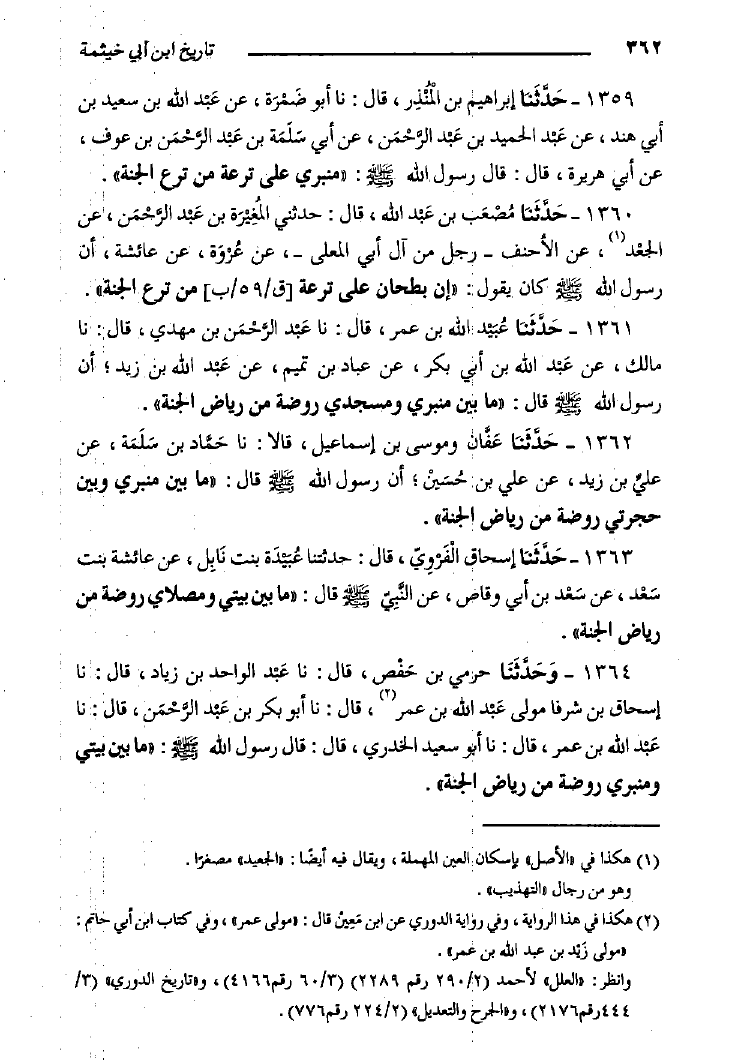 ٣٦٢ تاريخ ابن أبي خيثمة
١٣٥٩ - حَدَّثَنَا إبراهيم بن الْمُنْذِر ، قال : نا أبو ضَمْرَة ، عن عَبْد الله بن سعيد بن
أبي هند ، عن عَبْد الحميد بن عَبْد الرَّحْمَن ، عن أبي سَلَمَة بن عَبْد الرَّحْمَن بن عوف ،
عن أبي هريرة ، قال : قال رسول الله ﷺ : «منبري على ترعة من ترع الجنة» .
١٣٦٠ - حَدَّثَنَا مُصْعَب بن عَبْد الله ، قال : حدثني الْمُغِيْرَة بن عَبْد الرَّحْمَن ، عن
الجَعْد(١) ، عن الأحنف - رجل من آل أبي المعلى - ، عن عُرْوَة ، عن عائشة ، أن
رسول الله ﷺ كان يقول : «إن بطحان على ترعة [ق/٥٩/ب] من ترع الجنة» .
١٣٦١ - حَدَّثَنَا عُبَيْد الله بن عمر ، قال : نا عَبْد الرَّحْمَن بن مهدي ، قال : نا
مالك ، عن عَبْد الله بن أبي بكر ، عن عباد بن تميم ، عن عَبْد الله بن زيد ؛ أن
رسول الله ﷺ قال : «ما بين منبري ومسجدي روضة من رياض الجنة» .
١٣٦٢ - حَدَّثَنَا عَفَّان وموسى بن إسماعيل ، قالا : نا حَمَّاد بن سَلَمَة ، عن
عليّ بن زيد ، عن علي بن حُسَيْنْ ؛ أن رسول الله ﷺ قال : «ما بين منبري وبين
حجرتي روضة من رياض الجنة» .
١٣٦٣ - حَدَّثَنَا إسحاق الْفَرْوِيّ ، قال : حدثتنا عُبَيْدَة بنت نَابِل ، عن عائشة بنت
سَعْد ، عن سَعْد بن أبي وقاص ، عن النَّبِيّ ﷺ قال : «ما بين بيتي ومصلاي روضة من
رياض الجنة» .
١٣٦٤ - وَحَدَّثَنَا حرمي بن حَفْص ، قال : نا عَبْد الواحد بن زياد ، قال : نا
إسحاق بن شرفا مولى عَبْد الله بن عمر(٢) ، قال : نا أبو بكر بن عَبْد الرَّحْمَن ، قال : نا
عَبْد الله بن عمر ، قال : نا أبو سعيد الخدري ، قال : قال رسول الله ﷺ : «ما بين بيتي
ومنبري روضة من رياض الجنة» .
(١) هكذا في «الأصل» بإسكان العين المهملة ، ويقال فيه أيضًا : «الجعيد» مصغرًا .
وهو من رجال «التهذيب» .
(٢) هكذا في هذا الرواية ، وفي رواية الدوري عن ابن مَعِيْن قال : «مولى عمر» ، وفي كتاب ابن أبي حاتم :
«مولى زَيْد بن عبد الله بن عمر» .
وانظر : «العلل» لأحمد (٢/٢٩٠ رقم ٢٢٨٩) (٣/٦٠ رقم٤١٦٦) ، و«تاريخ الدوري» (٣/
٤٤٤رقم٢١٧٦) ، و«الجرح والتعديل» (٢/٢٢٤ رقم٧٧٦) .